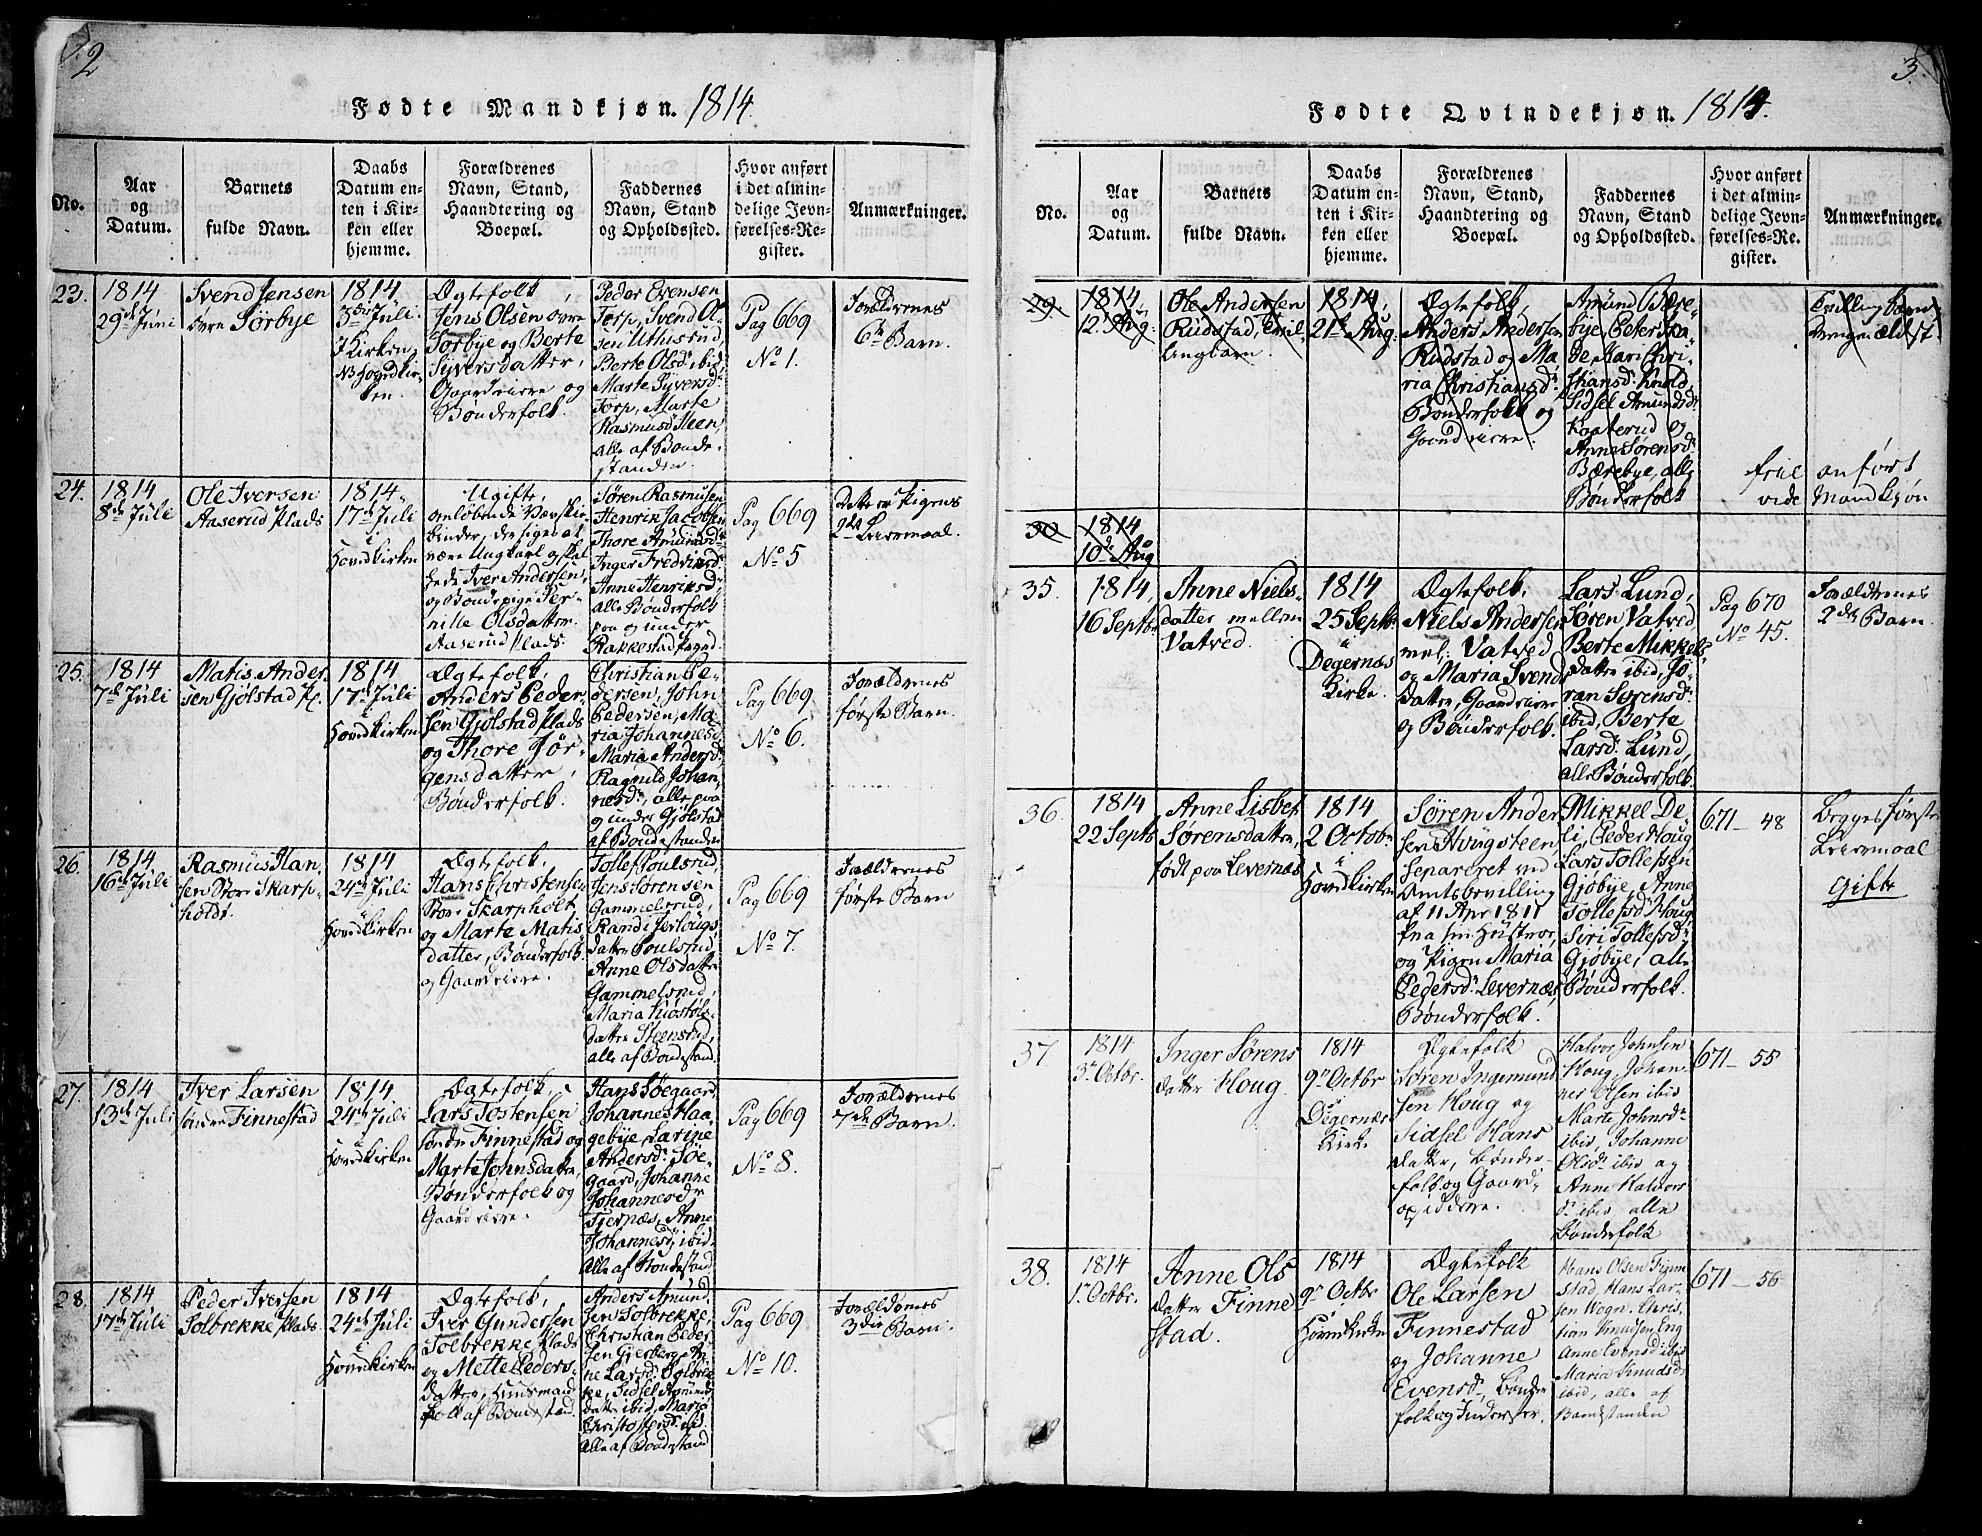 2
Fødte Mandkjøn. 1814
No.
Aar
og
Datum.
Barnets
fulde Navn.
Daabs
Datum en-
ten i Kir-
ken eller
hjemme.
Forældrenes
Navn, Stand,
Haandtering og
Boepæl.
Faddernes
Navn, Stand
og Opholdssted.
Hvor anført
i det almin-
delige Jevn-
førelses-Re-
gister.
Anmærkninger.
23.
1814
29de Juni
Svend Jensen
øvre Sørbye
1814
3die Juli
I Kirken
NB Hovedkir-
ken
Ægtefolk,
Jens Olsen øvre
Sørbye og Berte
Syversdatter,
Gaardeiere og
Bønderfolk.
Peder Evensen
Torp, Svend Ol-
sen Uthusrud,
Berte Olsdr ibid,
Marte Syversdr
Torp, Marte
Rasmusd Heen,
alle af Bonde-
standen.
Pag 669
No 1.
Forældrenes
6te Barn.
24.
1814
8de Juli
Ole Iversen
Aaserud Plads
1814
17de Juli
i
Hovedkirken
Ugifte,
omløbende Vævski-
binder, der siges at
være Ungkarl og skal
hede Iver Andersen,
og Bondepige Per-
nille Olsdatter
Aaserud Plads.
Søren Rasmusen
Henrik Jacobsen
Thore Amundsdr
Inger Fredriksdr
Anne Henriksdr
alle Bønderfolk
paa og under
Rakkestad Præsteg.
Pag 669
No 5
Dette er Pigens
2det Leiermaal.
25.
1814
7de Juli
Matis Ander-
sen Gjølstad Pl.
1814
17de Juli
i
Hovedkirken
Ægtefolk,
Anders Peder-
sen Gjølstad Plads
og Thore Jør-
gensdatter,
Bønderfolk.
Christian Pe-
dersen, John
Pedersen, Ma-
ria Johannesd
Maria Andersdr
Ragnild Johan-
nesdr, alle paa
og under Gjølstad
af Bondestanden
Pag 669
No 6.
Forældrenes
første Barn.
26.
1814
16de Juli
Rasmus Han-
sen Store Skarp-
holdt.
1814
24de Juli
i
Hovedkirken
Ægtefolk,
Hans Christensen
Store Skarpholt
og Marte Matis-
datter, Bønderfolk
og Gaardeiere.
Tollef Poulsrud,
Jens Sørensen
Gammelsrud,
Randi Jerløugs-
datter Poulsrud,
Anne Olsdatter
Gammelsrud,
Maria Kiøstols-
datter Steensrud,
alle af Bondestand.
Pag 669
No 7.
Forældrenes
første Barn
27.
1814
13de Juli
Iver Larsen
søndre Finnestad
1814
24de Juli
i
Hovedkirken
Ægtefolk,
Lars Tostensen
søndre Finnestad og
Marte Johnsdatter,
Bønderfolk og
Gaardeiere.
Hans Søegaard,
Johannes Haa-
gebye, Larine
Andersdr Søe-
gaard, Johanne
Johannesdr
Tjernæs, Anne
Johannesdr ibid
alle af Bondestand
Pag 669
No 8.
Forældrenes
7de Barn.
28.
1814
17de Juli
Peder Iversen
Solbrekke Plads.
1814
24de Juli
i
Hovedkirken
Ægtefolk,
Iver Gundersen
Solbrekke Plads
og Mette Peders-
datter, Huusmand
folk af Bondestand.
Anders Amund-
sen Solbrekke,
Christian Peder-
sen Gierberg, An-
ne Larsdr Solbræk-
ke, Sidsel Amunds-
datter ibid, Maria
Christophersdr ibid
alle af Bondestand
Pag 669
No 10.
Forældrenes
3die Barn.
3.
Fødte Qvindekjøn. 1814.
No.
Aar
og
Datum.
Barnets
fulde Navn.
Daabs
Datum en-
ten i Kir-
ken eller
hjemme.
Forældrenes
Navn, Stand,
Haandtering og
Boepæl.
Faddernes
Navn, Stand
og Opholdssted.
Hvor anført
i det almin-
delige Jevn-
førelses-Re-
gister.
Anmærkninger.
29.
1814,
12te Aug:
Ole Andersen
Rudstad, Tvil-
lingbarn.
1814,
21de Aug:
Ægtefolk,
Anders Andersen
Rudstad og Ma-
ria Christiansdr
Bønderfolk og
Gaardeiere.
Amund Bære-
bye, Peter
Sidsel Amundsdr
Kaaterud og
Anne Sørensdr
Bærebye, alle
Bønderfolk
feil
vide
Tvillingbarn
anført
Mandkjøn
30
1814
10de Aug
35.
1814,
16 Septbr
Anne Niels-
datter mellem
Vatved.
1814
25 Septbr
i
Degernæs
Kirke.
Ægtefolk,
Niels Andersen
mel: Vatved
og Maria Svends
Datter, Gaardeiere
og Bønderfolk.
Lars Lund,
Søren Vatved
Berte Mikkels-
datter ibid, Jø-
ran Sørensdr
ibid, Berte
Larsdr Lund,
alle Bønderfolk.
Pag 670
No 45.
Forældrenes
2det Barn.
36.
1814
22 Septb
Anne Lisbet
Sørensdatter,
født paa Levernæs
1814
2 Octobr
i
Hovedkirken
Søren Ander-
sen Hougsteen
Separeret ved
Amtsbevilling
af 11 Apr 1811
fra sin Hustrue,
og Pigen Maria
Pedersdr Levernæs
Bønderfolk.
Mikkel De-
li, Peder Houg
Lars Tollefsen
Gjøbye, Anne
Tollefsdr Houg
Siri Tollefsdr
Gjøbye, alle
Bønderfolk.
671 — 48
Begges første
Leiermaal
Gifte
37
1814
3de Octbr.
Inger Sørens
datter Houg
1814
9de Octbr
Degernæs
Kirke
Ægtefolk
Søren Ingemund
sen Houg og
Sidsel Hans
datter, Bønder-
folk og Gaard-
opsiddere.
Halvor Johnsen
Houg, Johan-
nes Olsen ibid
Marte Johnsdr
ibid, Johanne
Olsdr ibid og
Anne Halvors
dr ibid, alle
Bønderfolk
671 — 55
38.
1814
1te Octbr.
Anne Ols
datter Finne
stad.
1814
9de Octbr
Hovedkirke
Ægtefolk
Ole Larsen
Finnestad
og Johanne
Evensdr, Bønder
folk og Inderster.
Hans Olsen Finne
stad, Hans Lar-
sen Wogn, Chris-
tian Knudsen Eng
Anne Evensdr ibid
Maria Knudsdr
ibid, alle af
Bondestanden
671 — 56